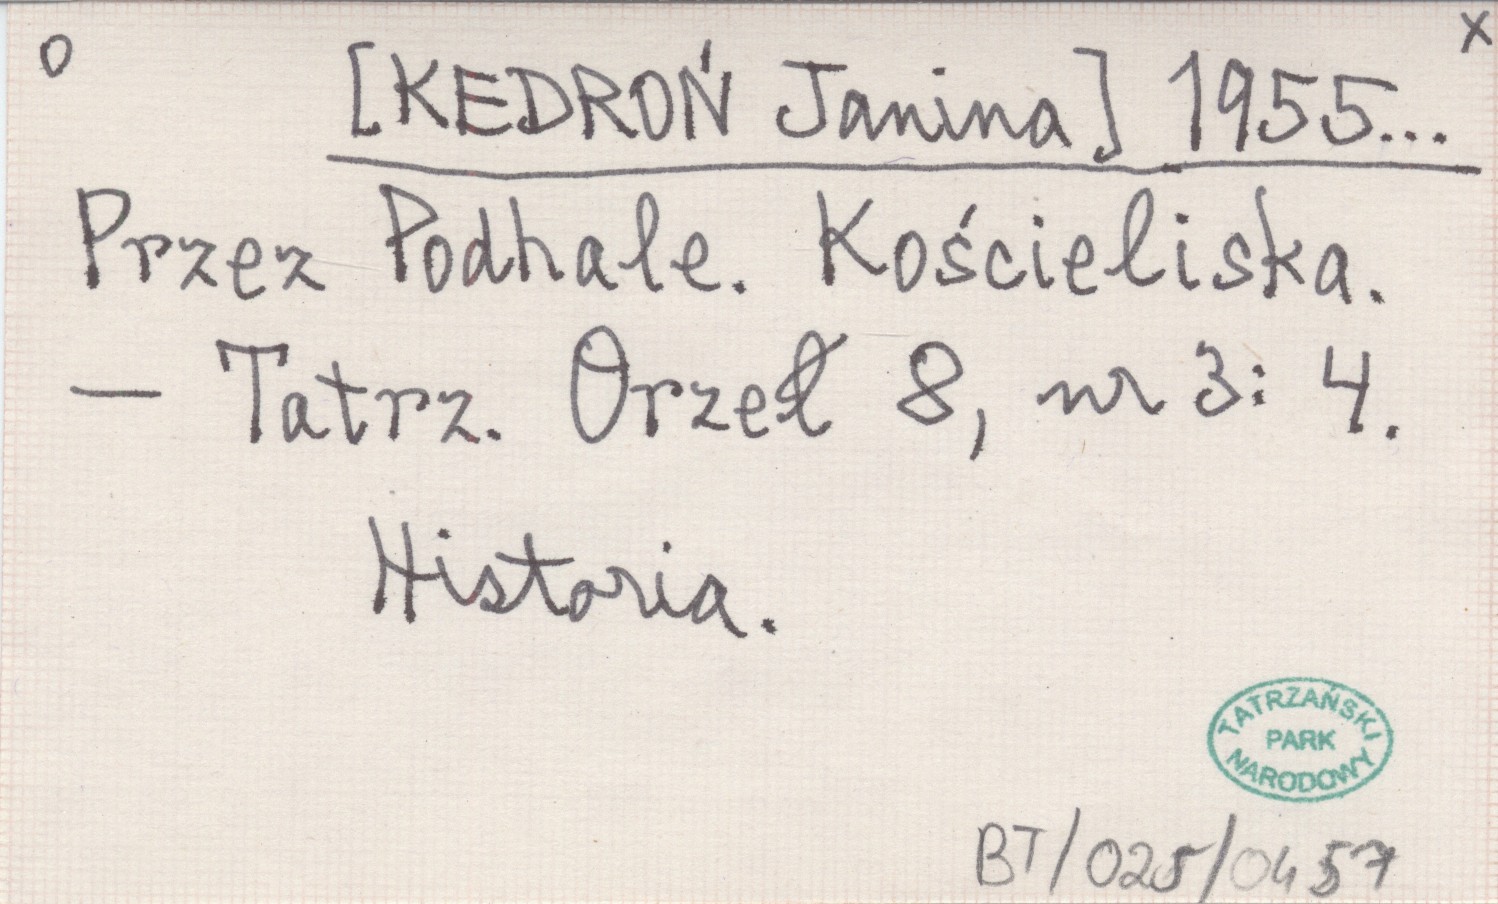 o
x
[KEDROŃ Janina] 1955...
Przez Podhale. Kościeliska.
— Tatrz. Orzeł 8, nr 3: 4.
Historia.
TATRZAŃSKI
PARK
NARODOWY
BT/025/0457